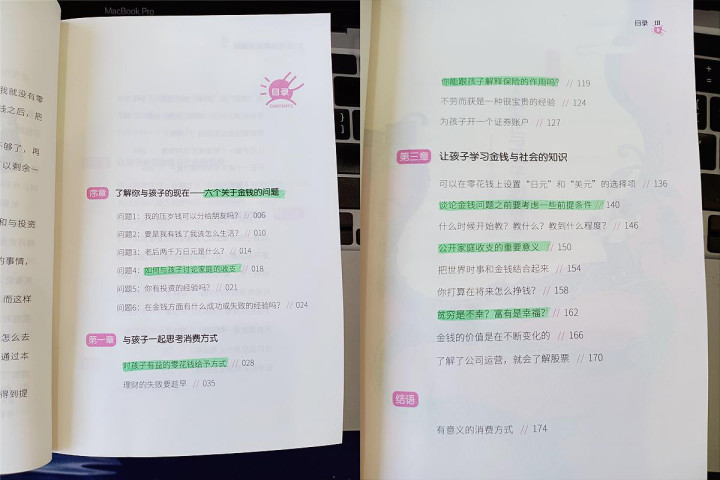 MacBook Pro
我就没有零
钱之后，把
不够了，再
可以剩余一
和与投资
的事情，
而这样
怎么去
通过本
得到提
目录
CONTENTS
序章 了解你与孩子的现在——六个关于金钱的问题
问题1：我的压岁钱可以分给朋友吗？ // 006
问题2：要是我有钱了我该怎么生活？ // 010
问题3：老后两千万日元是什么？ // 014
问题4：如何与孩子讨论家庭的收支 // 018
问题5：你有投资的经验吗？ // 021
问题6：在金钱方面有什么成功或失败的经验吗？ // 024
第一章 与孩子一起思考消费方式
对孩子有益的零花钱给予方式 // 028
理财的失败要趁早 // 035
目录 III
你能跟孩子解释保险的作用吗？ // 119
不劳而获是一种很宝贵的经验 // 124
为孩子开一个证券账户 // 127
第三章 让孩子学习金钱与社会的知识
可以在零花钱上设置“日元”和“美元”的选择项 // 136
谈论金钱问题之前要考虑一些前提条件 // 140
什么时候开始教？教什么？教到什么程度？ // 146
公开家庭收支的重要意义 // 150
把世界时事和金钱结合起来 // 154
你打算在将来怎么挣钱？ // 158
贫穷是不幸？富有是幸福？ // 162
金钱的价值是在不断变化的 // 166
了解了公司运营，就会了解股票 // 170
结语
有意义的消费方式 // 174